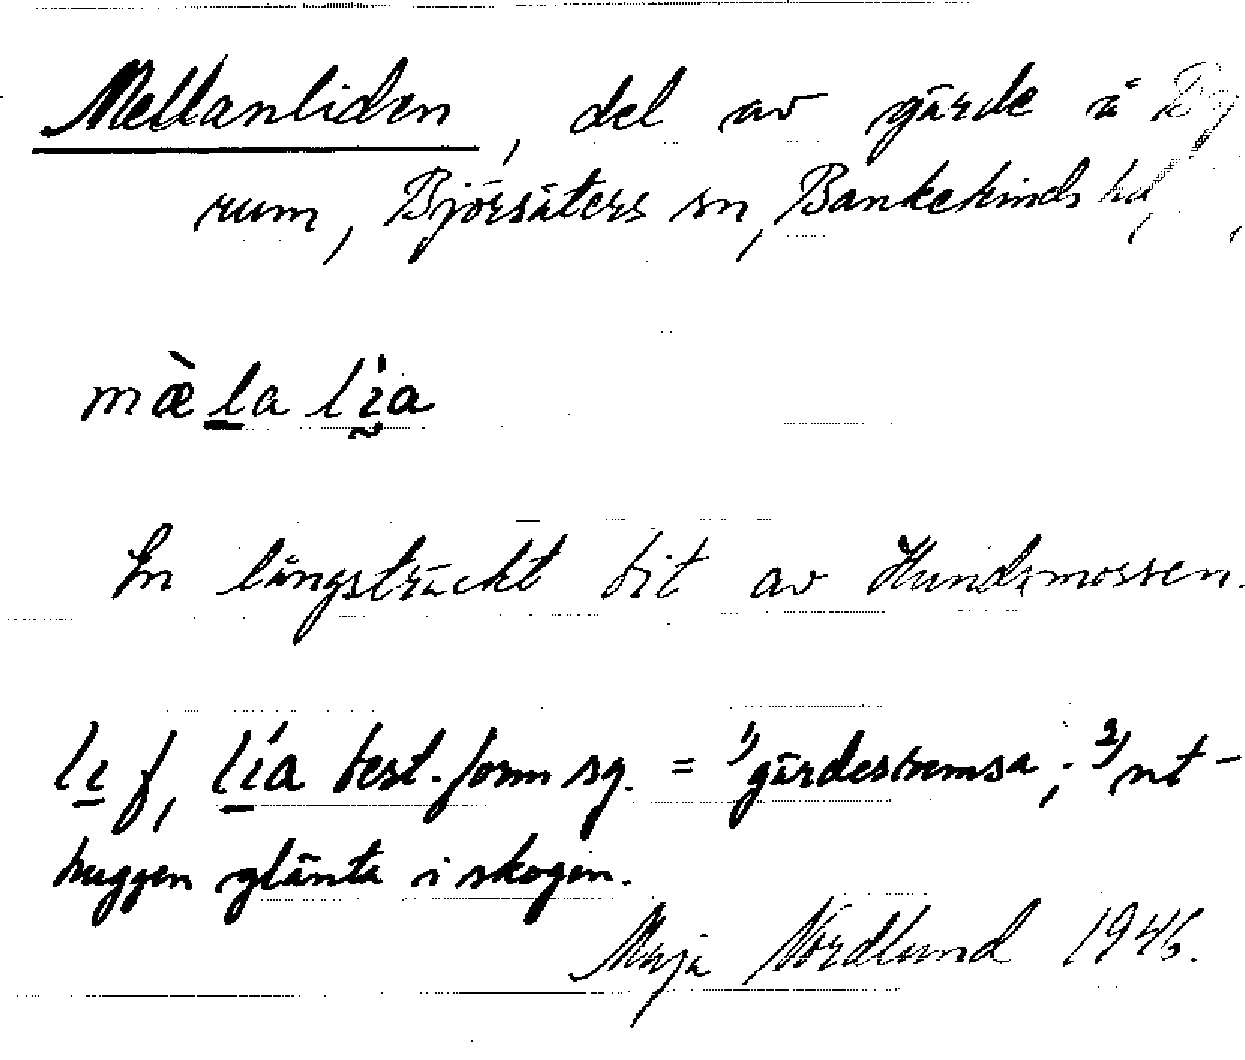 Mellanliden, del av gärde å Dy
rum, Björsäters sn, Bankekinds hd,
mæ̀la lı́a
En långsträckt bit av Hundsmossen.
lı f, lı́a best. form sg. = 1/ gärdesremsa; 2/ ut-
huggen glänta i skogen.
Maja Nordlund 1946.